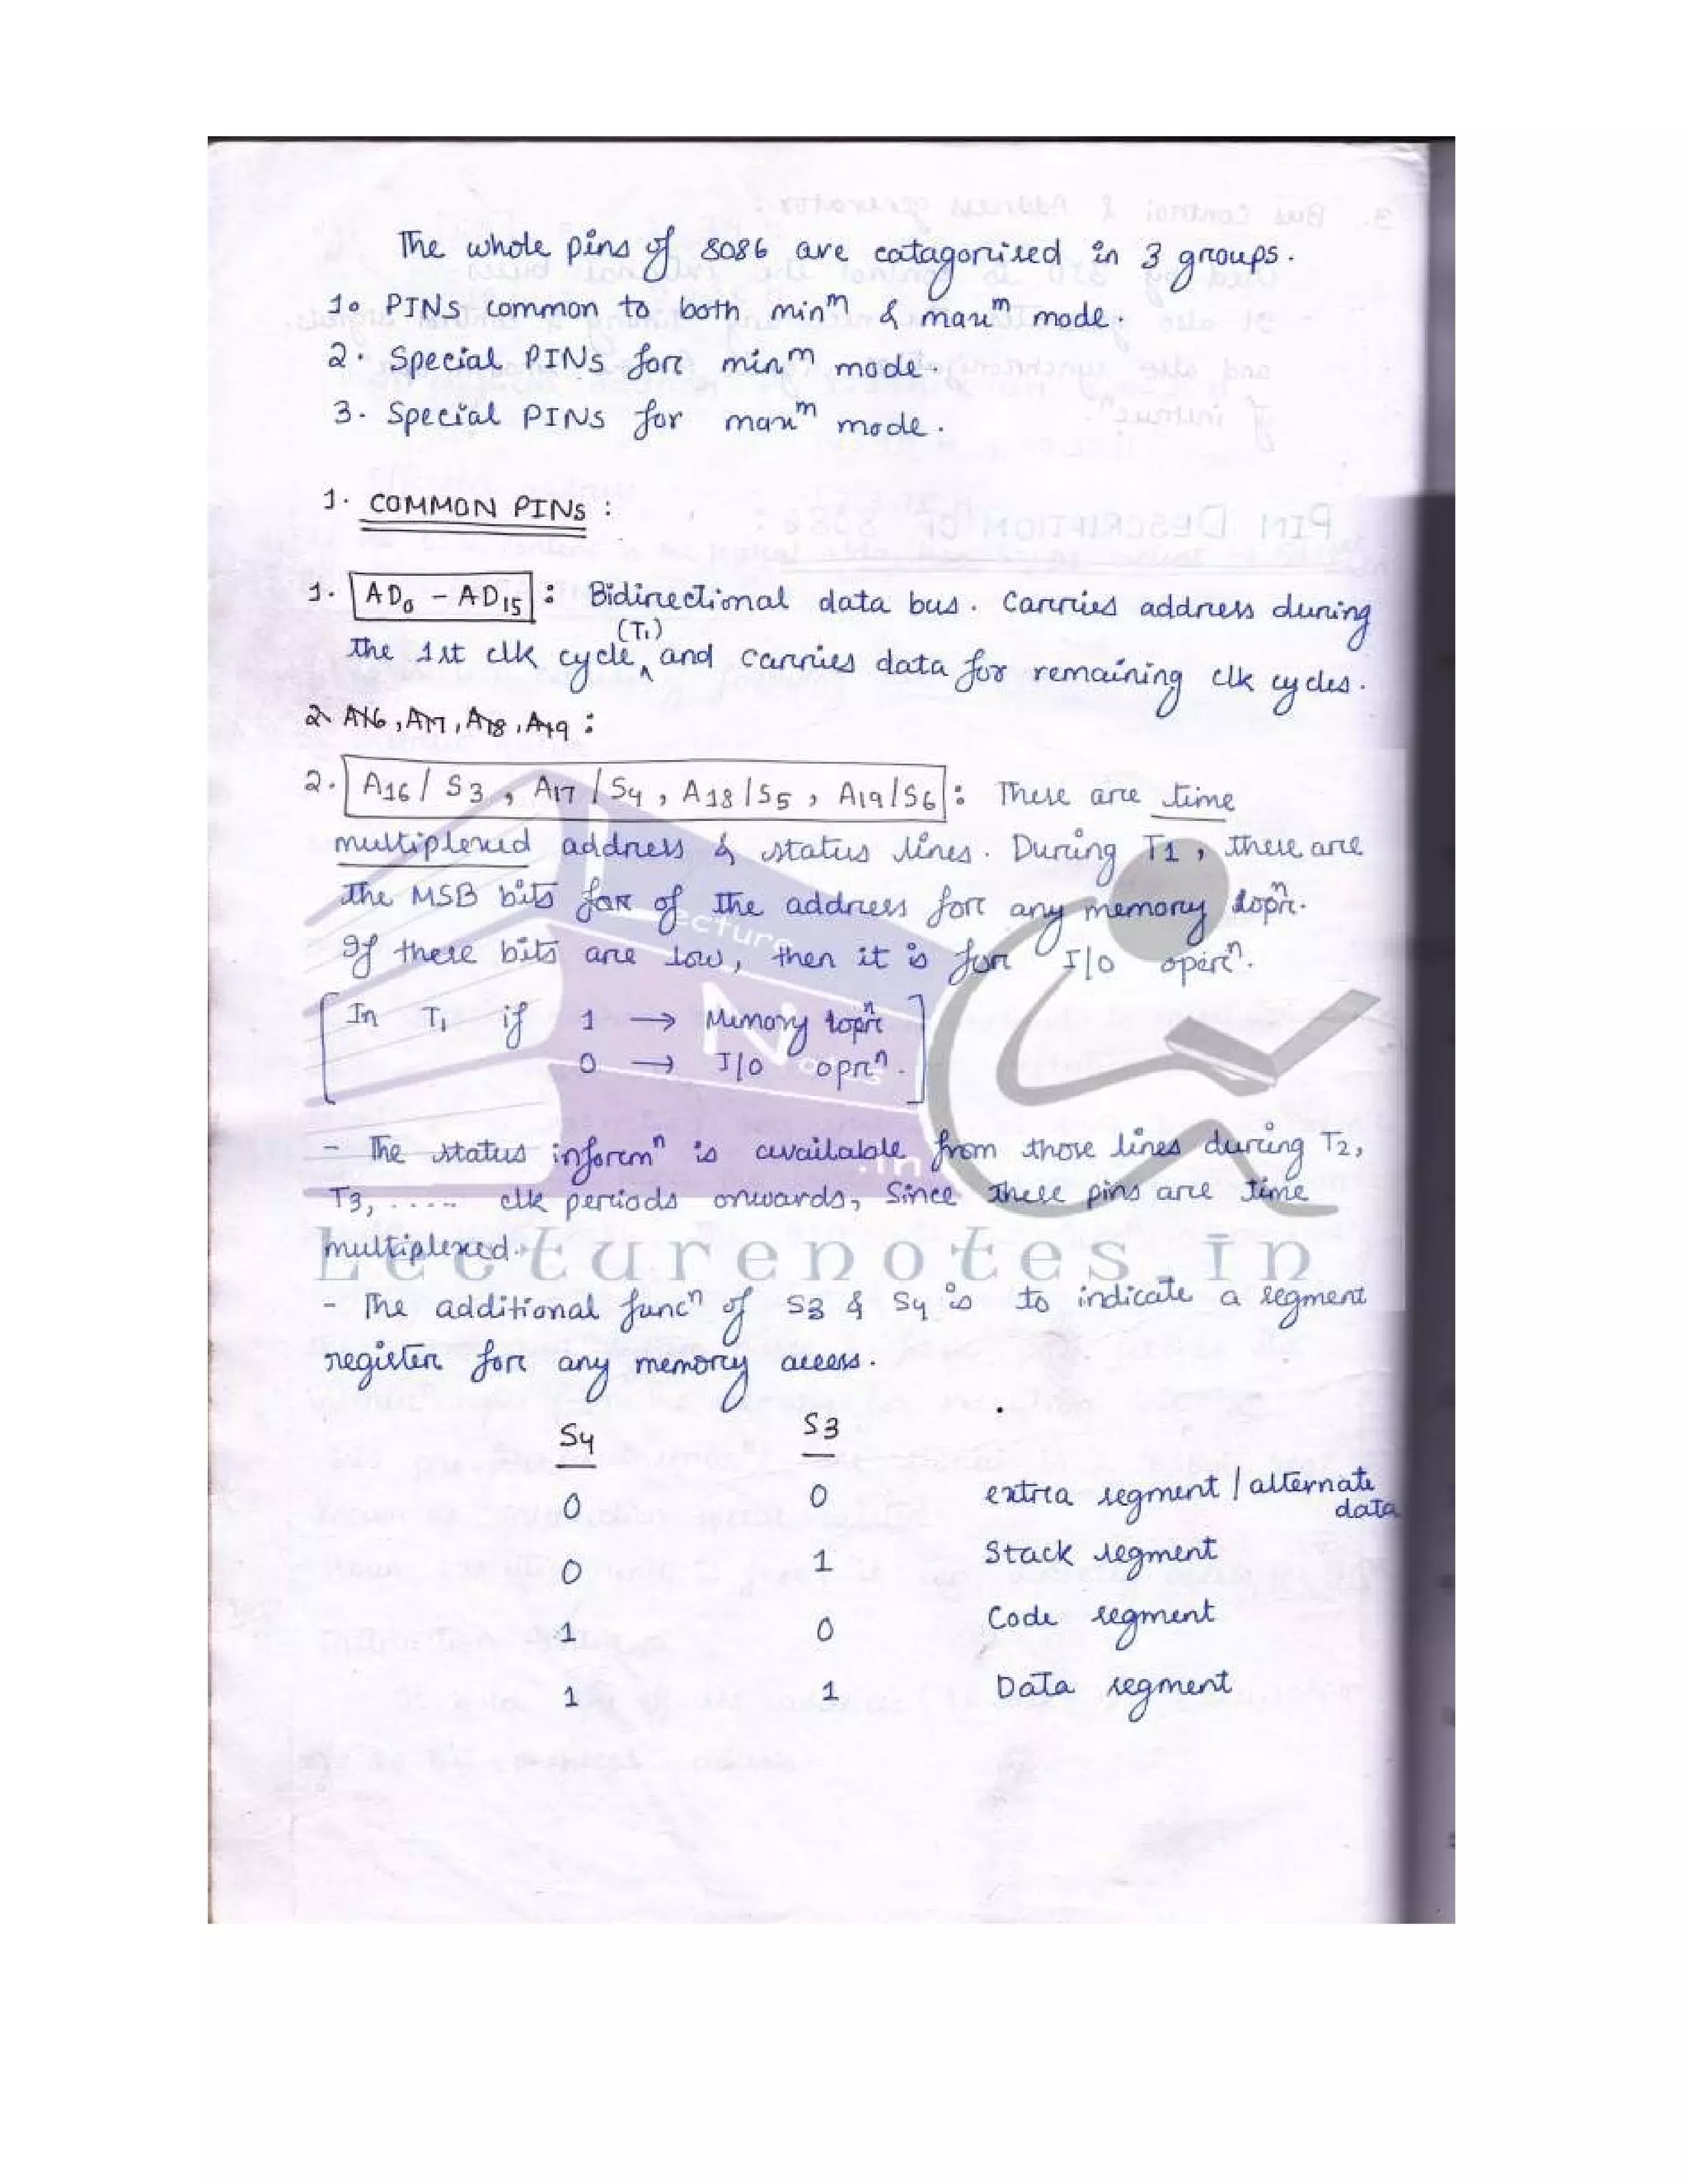 The whole pins of 8086 are catagorised in 3 groups.
1. PINs common to both minᵐ & maxᵐ mode.
2. Special PINs for minᵐ mode.
3. Special PINs for maxᵐ mode.
1. COMMON PINs :
1. AD₀ - AD₁₅ : Bidirectional data bus. Carries address during
the 1st clk cycle (T₁) and carries data for remaining clk cycles.
2. A16, A17, A18, A19 :
2. A16 / S3, A17 / S4, A18 / S5, A19 / S6 : These are time
multiplexed address & status lines. During T1, these are
the MSB bits for of the address for any memory opnⁿ.
If these bits are low, then it is for I/O operⁿ.
In T₁ if 1 → Memory oprⁿ
0 → I/O oprⁿ.
- The status informⁿ is available from those lines during T2,
T3, ..... clk periods onwards, Since these pins are time
multiplexed.
- The additional funcⁿ of S3 & S4 is to indicate a segment
register for any memory access.
S4 S3
0 0 extra segment / alternate data
0 1 Stack segment
1 0 Code segment
1 1 Data segment
Lecture
Notes
.in
Lecturenotes.in